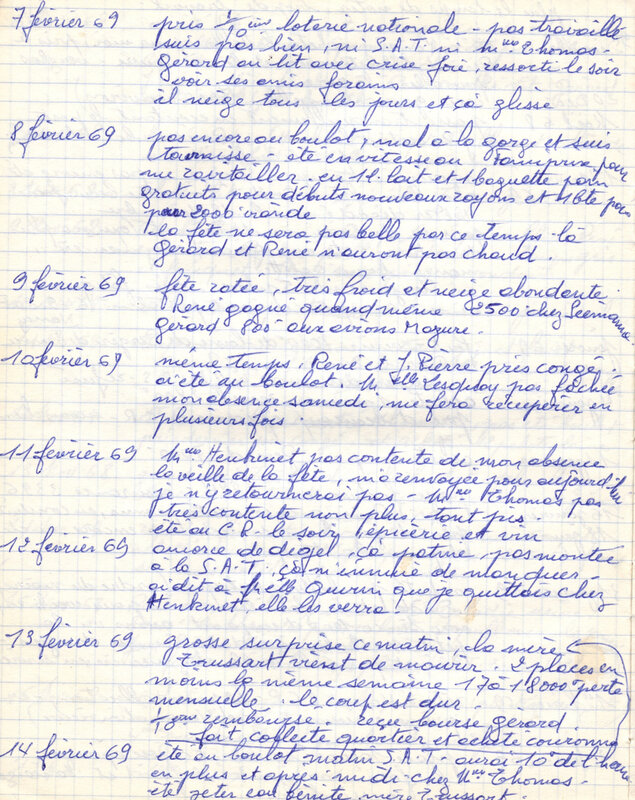 7 février 69 pris 1/10ème loterie nationale - pas travaillé
suis pas bien, ni S.A.T. ni Mme Thomas -
Gérard au lit avec crise foie, ressorti le soir
voir ses amis forains
il neige tous les jours et çà glisse
8 février 69 pas encore au boulot, mal à la gorge et suis
- été en vitesse au pour
me ravitailler. eu 1l. lait et 1 baguette pain
gratuits pour débuts nouveaux rayons et 1 Btle
pour 2000 viande
la fête ne sera pas belle par ce temps là
Gérard et René n'auront pas chaud.
9 février 69 fête ratée, très froid et neige abondante.
René gagné quand même 2500 chez
Gérard 800 aux avions Mazure.
10 février 69 même temps, René et J. Pierre pris congé.
ai été au boulot. Melle pas fachée
mon absence samedi, me fera récupérer en
plusieurs fois.
11 février 69 Mme Henkinet pas contente de mon absence
la veille de la fête, m'a renvoyée pour aujourd'hui
je n'y retournerai pas - Mme Thomas pas
très contente non plus, tant pis.
été au C.R. le soir, épicerie et vin
12 février 69 encore de dégel, çà patine, pas montée
à la S.A.T. çà m'ennuie de manquer.
ai dit à Melle que je quittais chez
Henkinet, elle les verra.
13 février 69 grosse surprise ce matin, la mère
Trussart vient de mourir. 2 places en
moins la même semaine 17 à 18000 perte
mensuelle. le coup est dur.
1/10ème remboursé. reçu bourse Gérard.
fait collecte quartier et acheté couronne
14 février 69 été au boulot matin S.A.T. aurai 10 de l'heure
en plus et après midi chez Mme Thomas.
été jeter eau bénite mère Trussart.